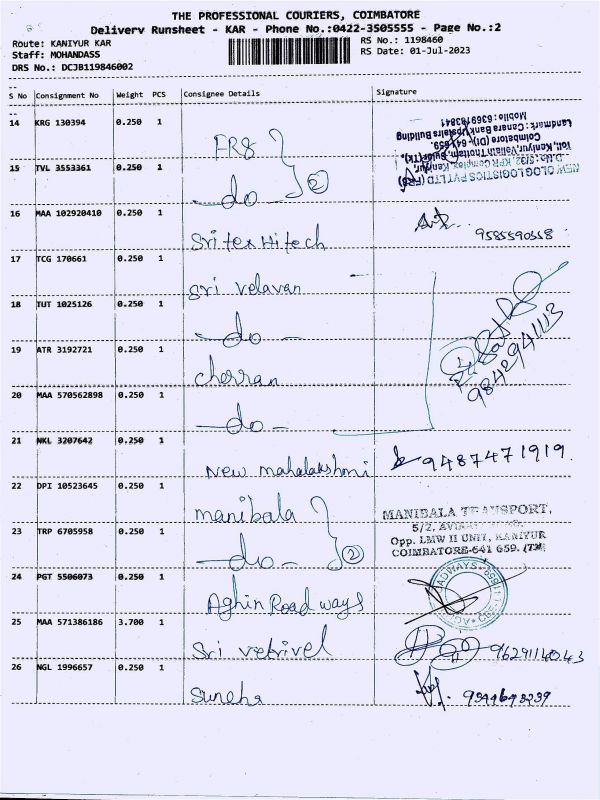 THE PROFESSIONAL COURIERS, COIMBATORE
Delivery Runsheet - KAR - Phone No.:0422-3505555 - Page No.:2
Route: KANIYUR KAR
RS No.: 1198460
Staff: MOHANDASS
RS Date: 01-Jul-2023
DRS No.: DCJB119846002
S No Consignment No Weight PCS Consignee Details Signature
14 KRG 130394 0.250 1 FR8
15 TVL 3553361 0.250 1 -do- 2
NEW OLOG LOGISTICS PVT LTD (FR8)
D.No: 5/32, KPR Complex, Kaniyur,
Toll, Kaniyur, Valiath Thottam, Sulur(TK),
Coimbatore (Dt)- 641 659.
Landmark : Canara Bank Upstair Building
Mobile : 6369783841
16 MAA 102920410 0.250 1 Sri tex Hitech
17 TCG 170661 0.250 1 Sri velavan
18 TUT 1025126 0.250 1 -do-
19 ATR 3192721 0.250 1 Cherran
9842941113
20 MAA 570562898 0.250 1 -do-
21 NKL 3207642 0.250 1 New mahalakshmi 9487471919
22 DPI 10523645 0.250 1 manibala
23 TRP 6705958 0.250 1 -do- 2
MANIBALA TRANSPORT,
5/2,
Opp. LMW II UNIT, KANIYUR
COIMBATORE-641 659. (TN)
24 PGT 5506073 0.250 1 Aghin Road ways
25 MAA 571386186 3.700 1 Sri vetrivel 9629114043
26 NGL 1996657 0.250 1 Suneha